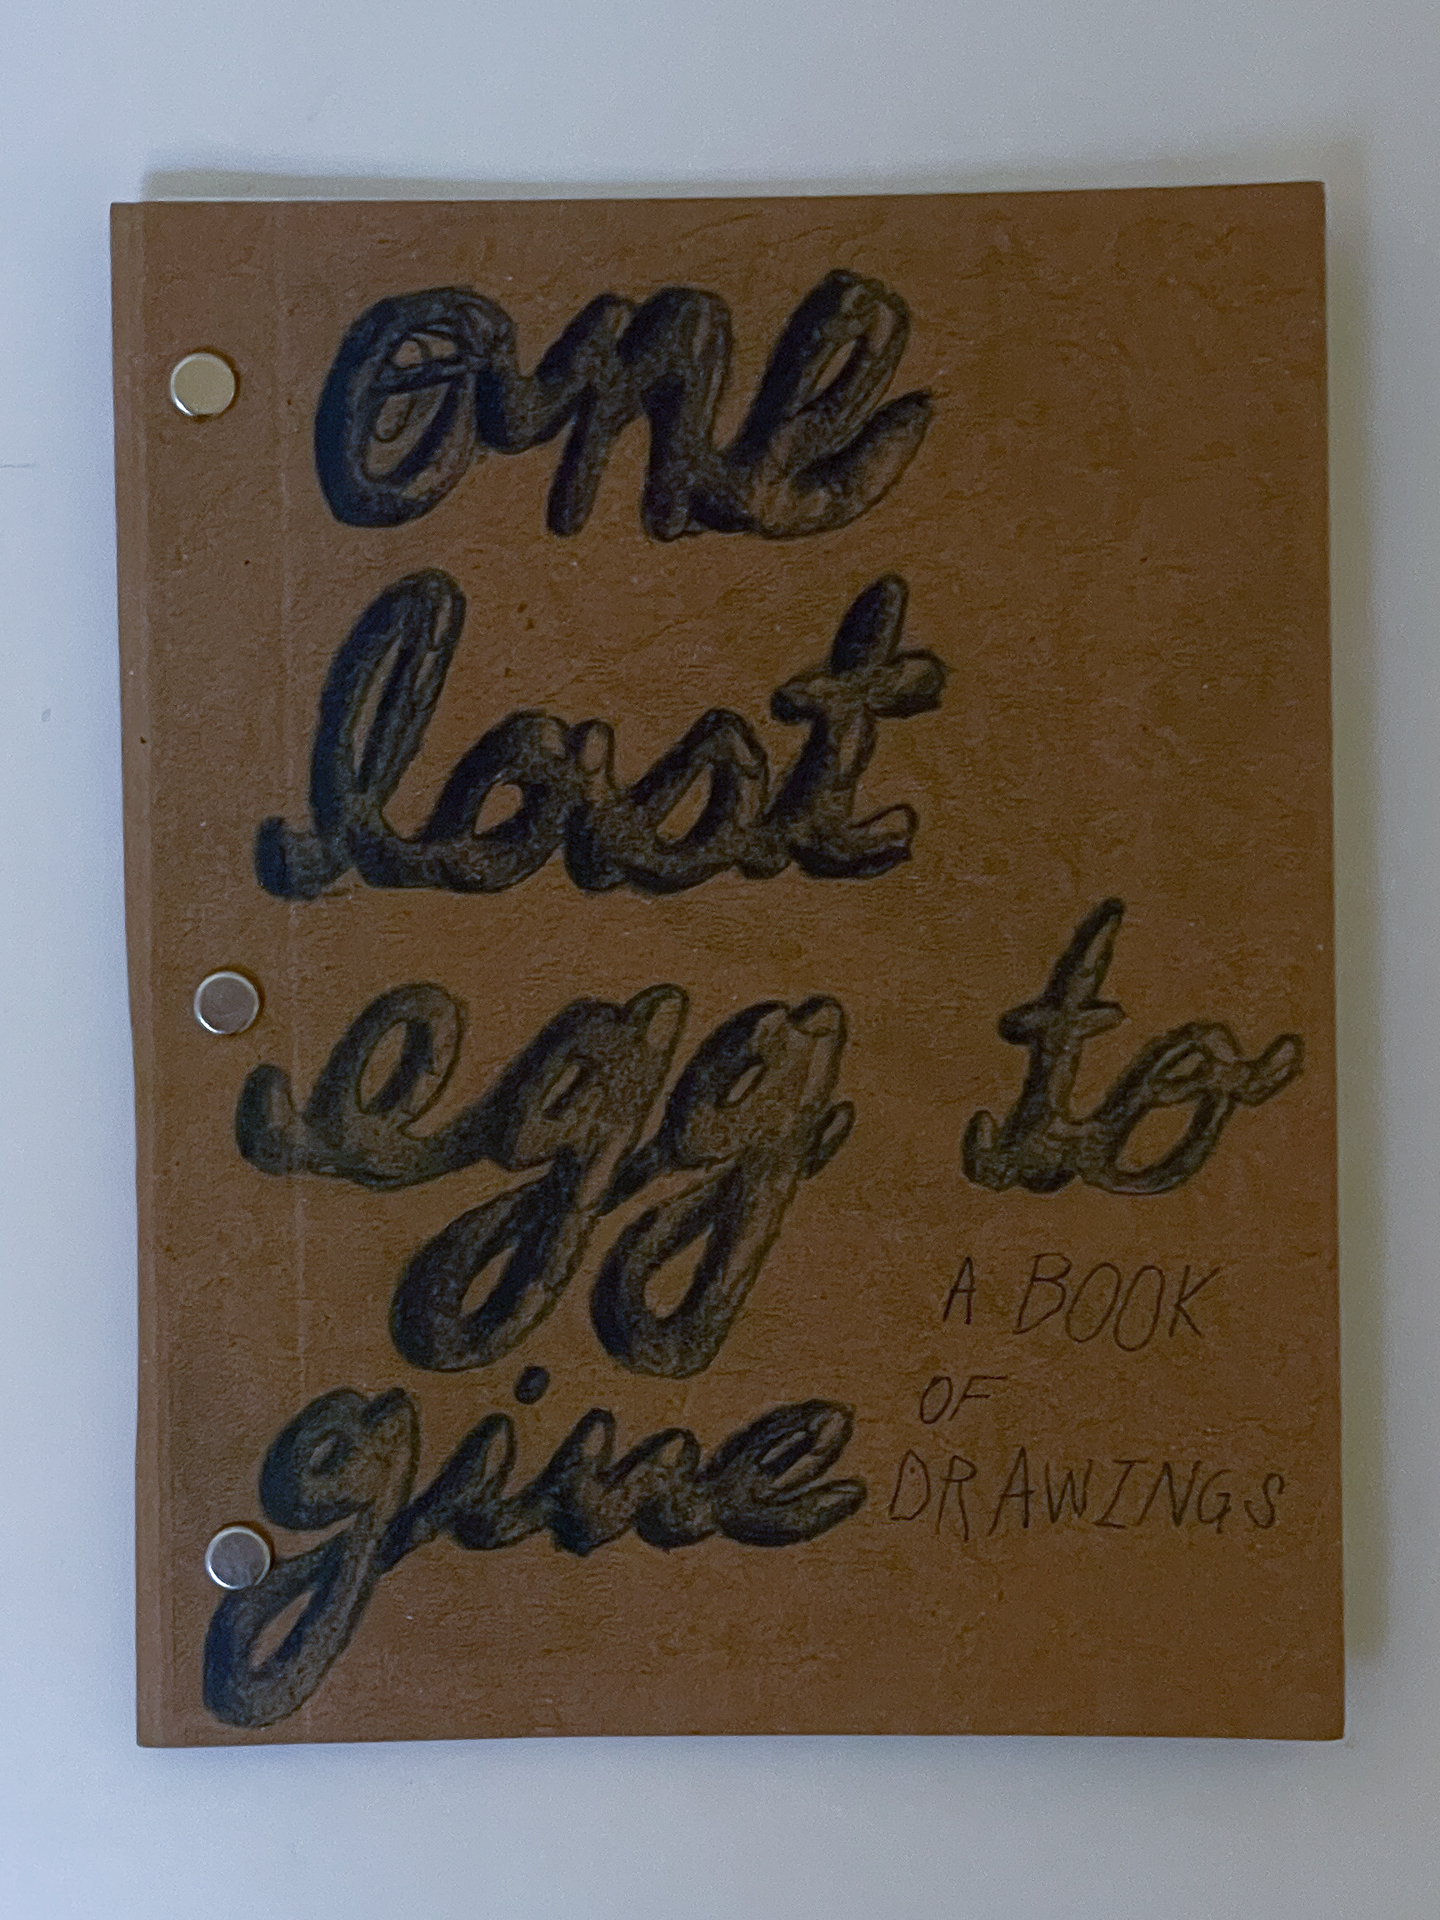 one
last
egg to
give
A BOOK
OF
DRAWINGS